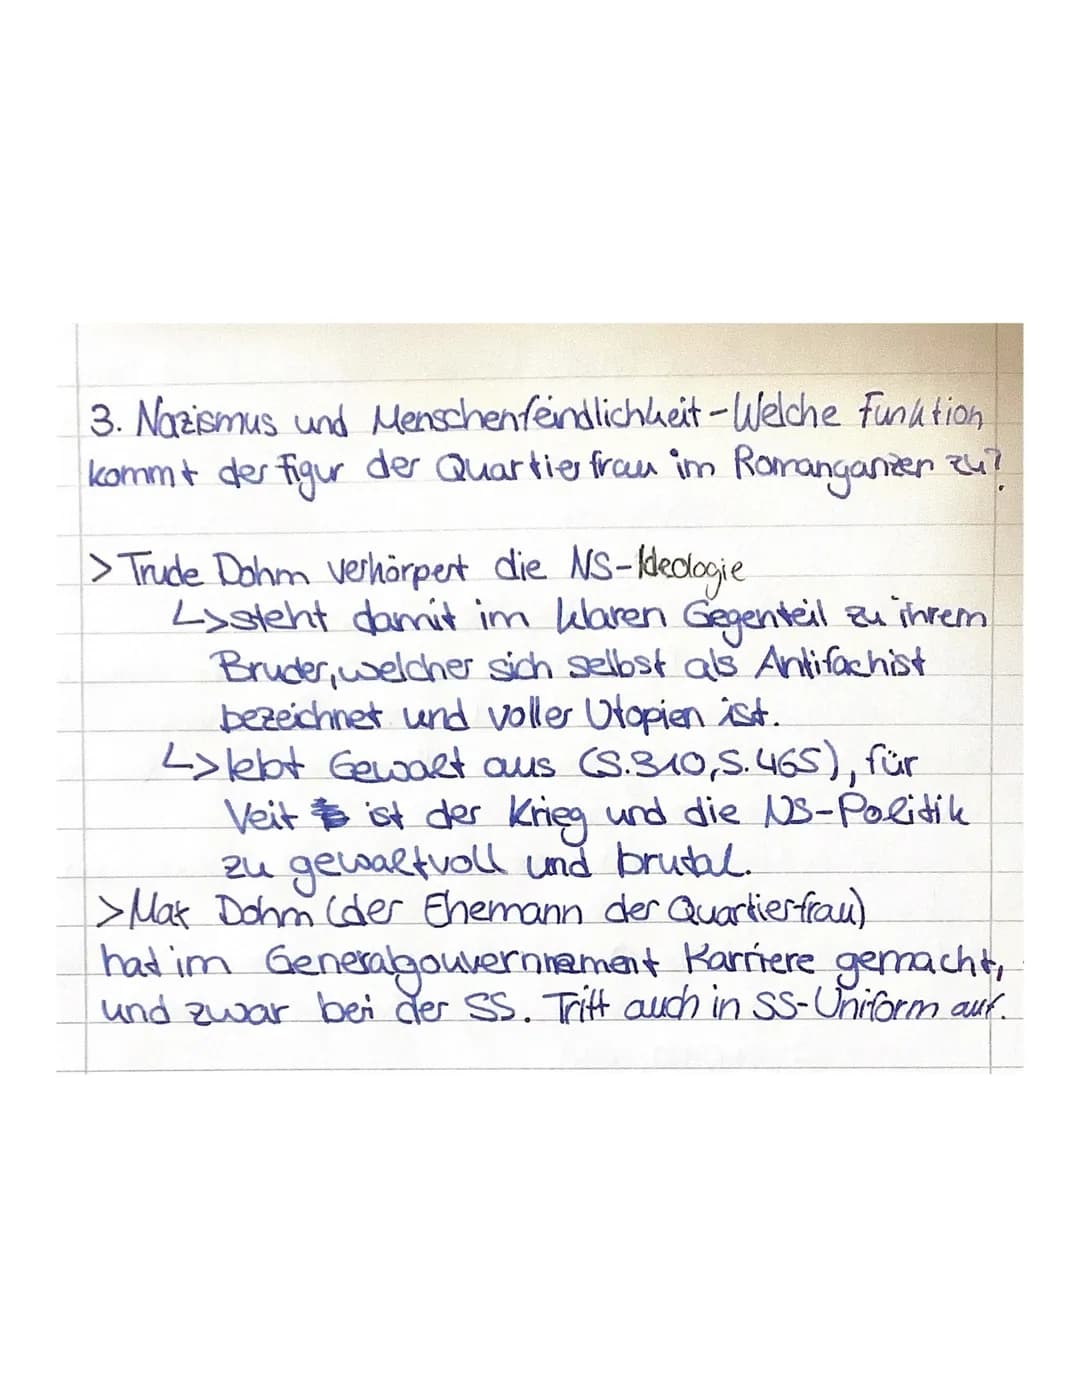 3. Nazismus und Menschenfeindlichkeit - Welche Funktion
kommt der Figur der Quartierfrau im Romanganzen zu?
> Trude Dohm verkörpert die NS-Ideologie
↳> steht damit im klaren Gegenteil zu ihrem
Bruder, welcher sich selbst als Antifachist
bezeichnet und voller Utopien ist.
↳> lebt Gewalt aus (S.310, S.465), für
Veit ist der Krieg und die NS-Politik
zu gewaltvoll und brutal.
> Max Dohm (der Ehemann der Quartierfrau)
hat im Generalgouvernnement Karriere gemacht,
und zwar bei der SS. Tritt auch in SS-Uniform auf.